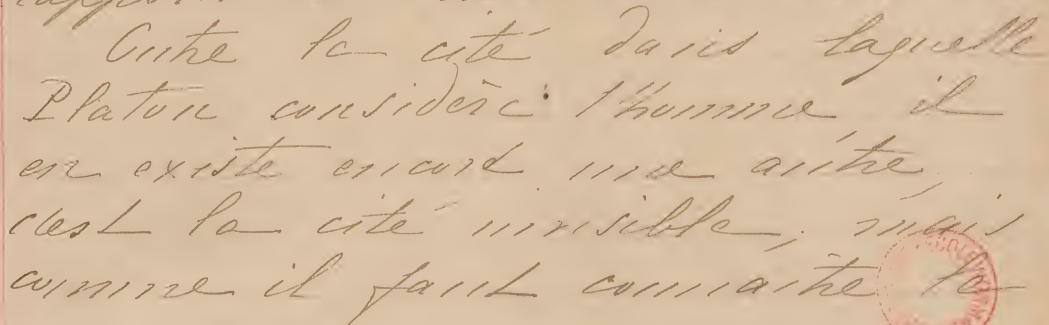 Outre la cité dans laquelle
Platon considère l'homme il
en existe encore une autre,
c'est la cité invisible, mais
comme il faut connaitre la